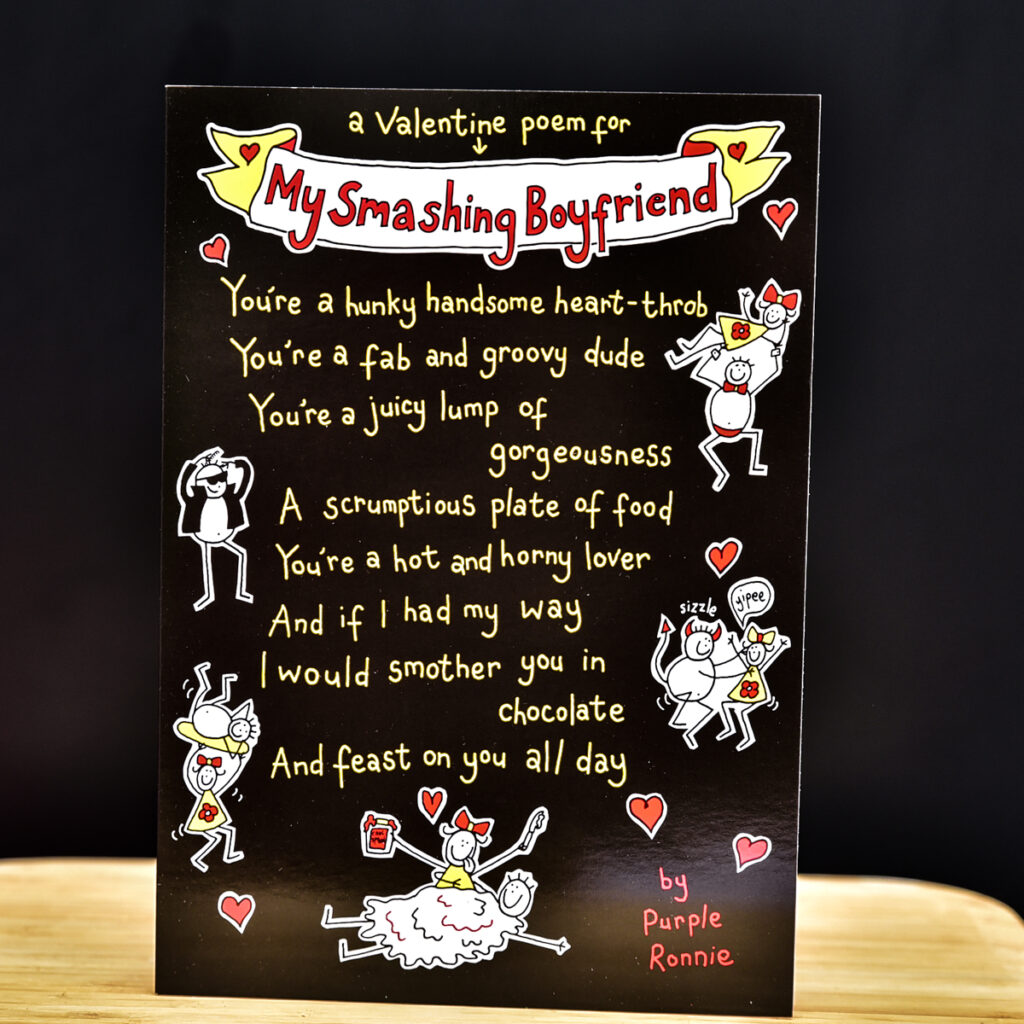 a Valentine poem for
My Smashing Boyfriend
You're a hunky handsome heart-throb
You're a fab and groovy dude
You're a juicy lump of
gorgeousness
A scrumptious plate of food
You're a hot and horny lover
sizzle
yipee
And if I had my way
I would smother you in
chocolate
And feast on you all day
by
Purple
Ronnie